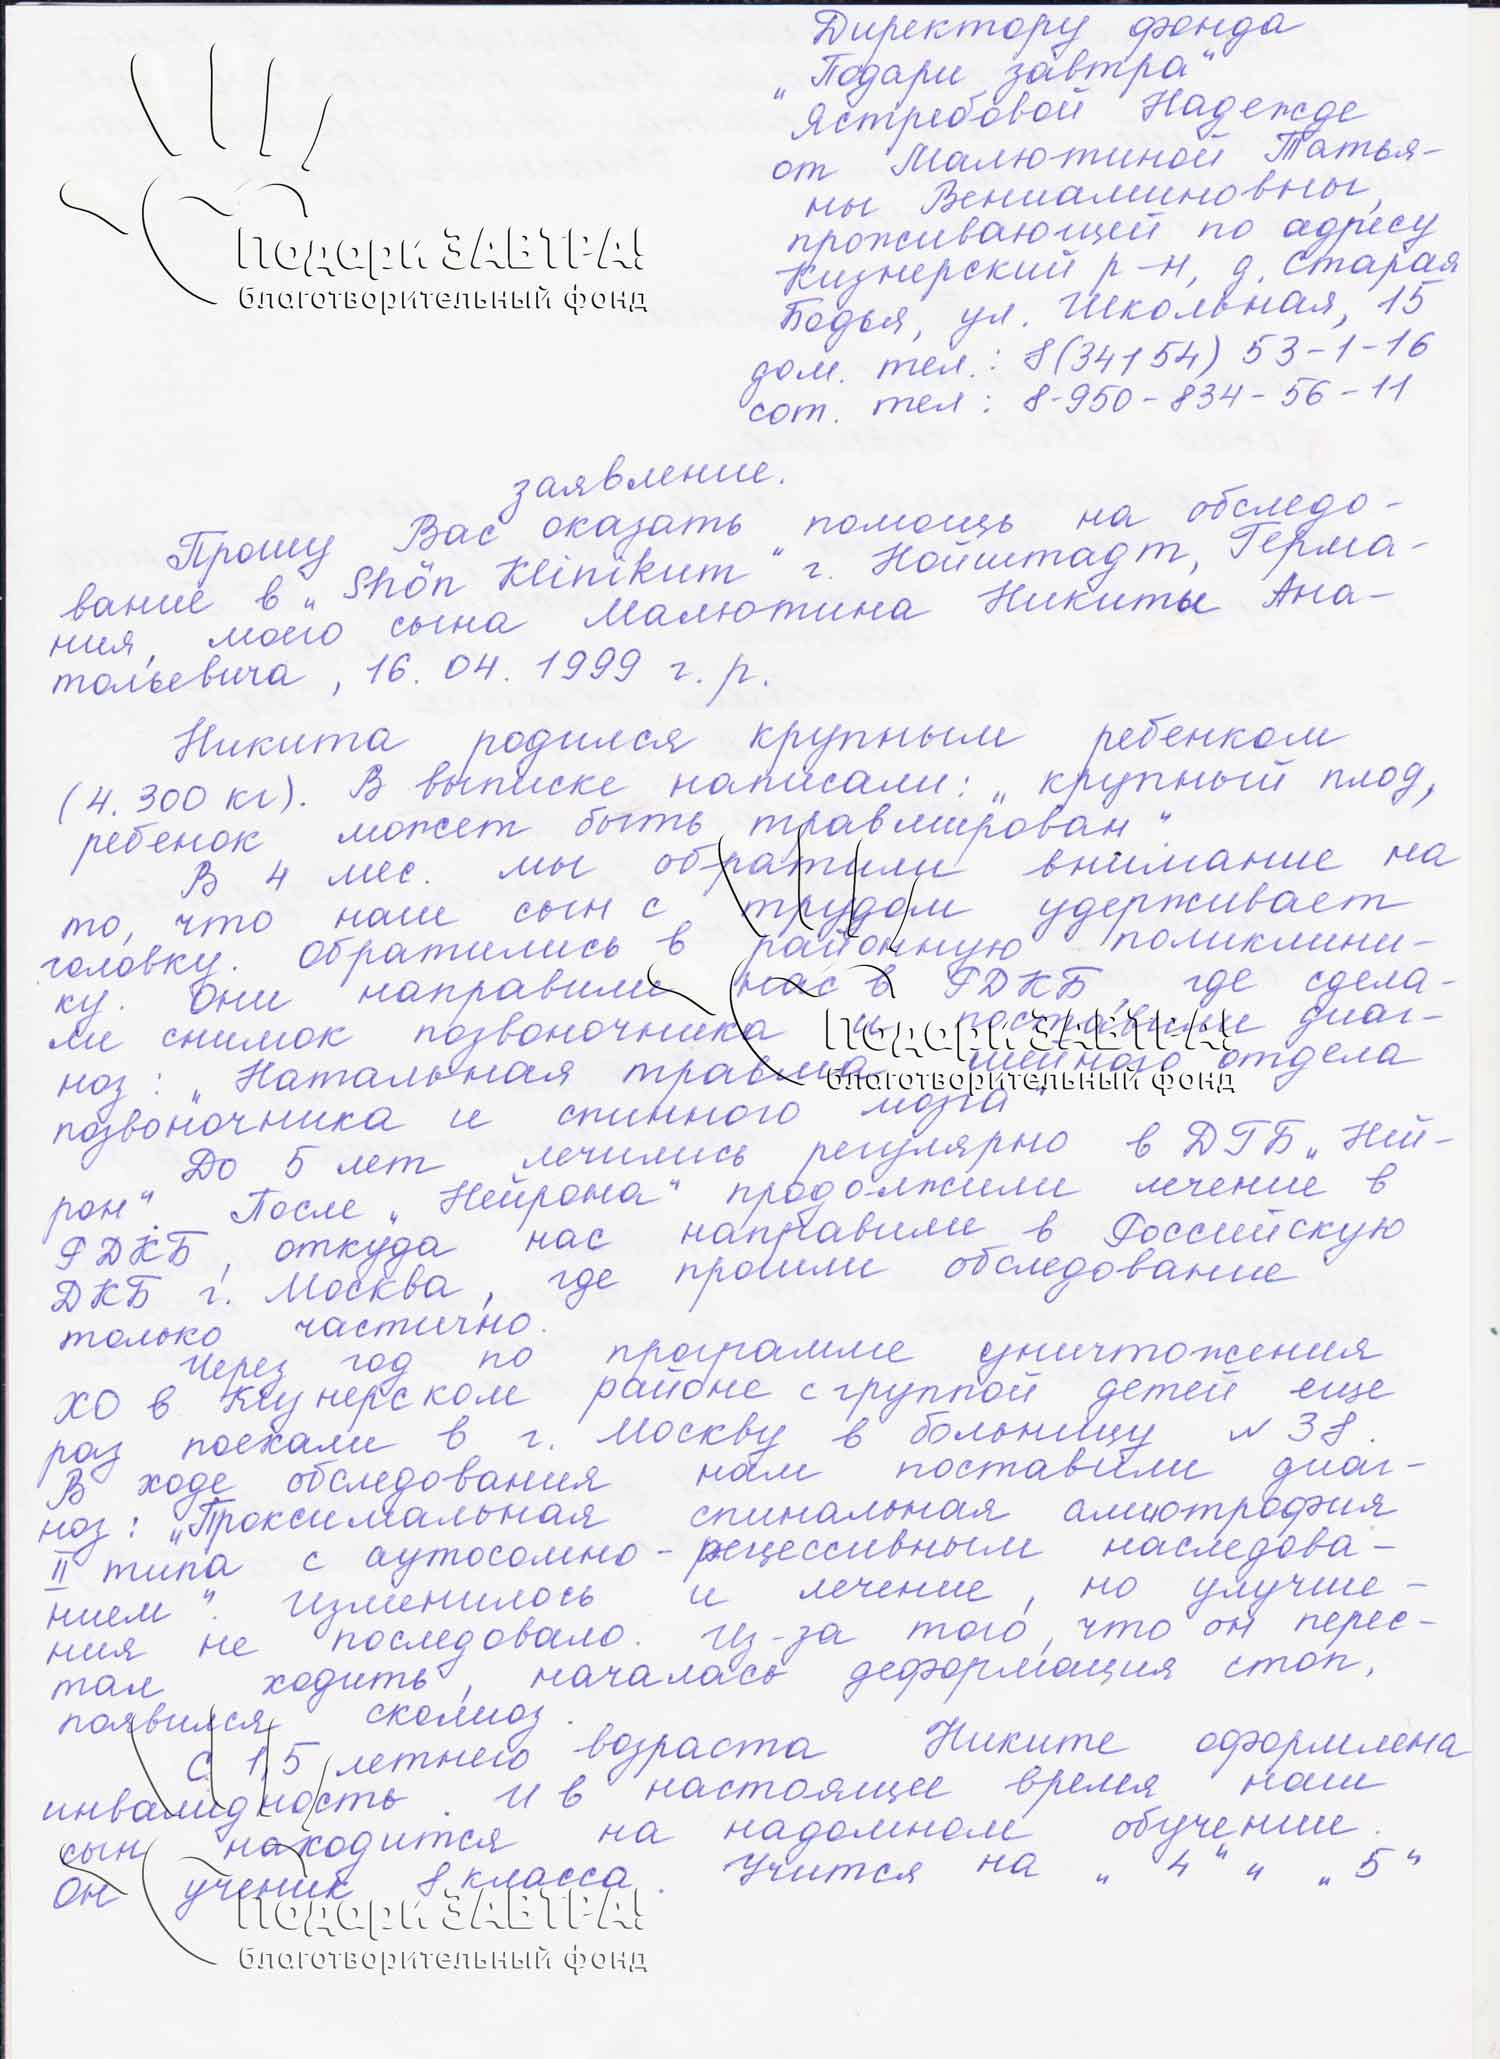 Директору фонда
„Подари завтра"
Ястребовой Надежде
от Малютиной Татья-
ны Вениаминовны,
проживающей по адресу
Кизнерский р-н, д. Старая
Бодья, ул. Школьная, 15
дом. тел.: 8(34154) 53-1-16
сот. тел: 8-950-834-56-11
Подари ЗАВТРА!
благотворительный фонд
заявление.
Прошу Вас оказать помощь на обследо-
вание в „Shön Klinikum" г. Нойштадт, Герма-
ния, моего сына Малютина Никиты Ана-
тольевича, 16.04.1999 г.р.
Никита родился крупным ребенком
(4.300 кг). В выписке написали: „крупный плод,
ребенок может быть травмирован"
В 4 мес. мы обратили внимание на
то, что наш сын с трудом удерживает
головку. Обратились в районную поликлини-
ку. Они направили нас в РДКБ, где сдела-
ли снимок позвоночника и поставили диаг-
ноз: „Натальная травма шейного отдела
позвоночника и спинного мозга"
Подари ЗАВТРА!
благотворительный фонд
До 5 лет лечились регулярно в ДГБ „Ней-
рон". После „Нейрона" продолжили лечение в
РДКБ, откуда нас направили в Российскую
ДКБ г. Москва, где прошли обследование
только частично.
Через год по программе уничтожения
ХО в Кизнерском районе с группой детей еще
раз поехали в г. Москву в больницу N 38.
В ходе обследования нам поставили диаг-
ноз: „Проксимальная спинальная амиотрофия
II типа с аутосомно-рецессивным наследова-
нием". Изменилось и лечение, но улучше-
ния не последовало. Из-за того, что он перес-
тал ходить, началась деформация стоп,
появился сколиоз.
С 1,5 летнего возраста Никите оформлена
инвалидность. И в настоящее время наш
сын находится на надомном обучении.
Он ученик 8 класса. Учится на „4" и „5"
Подари ЗАВТРА!
благотворительный фонд